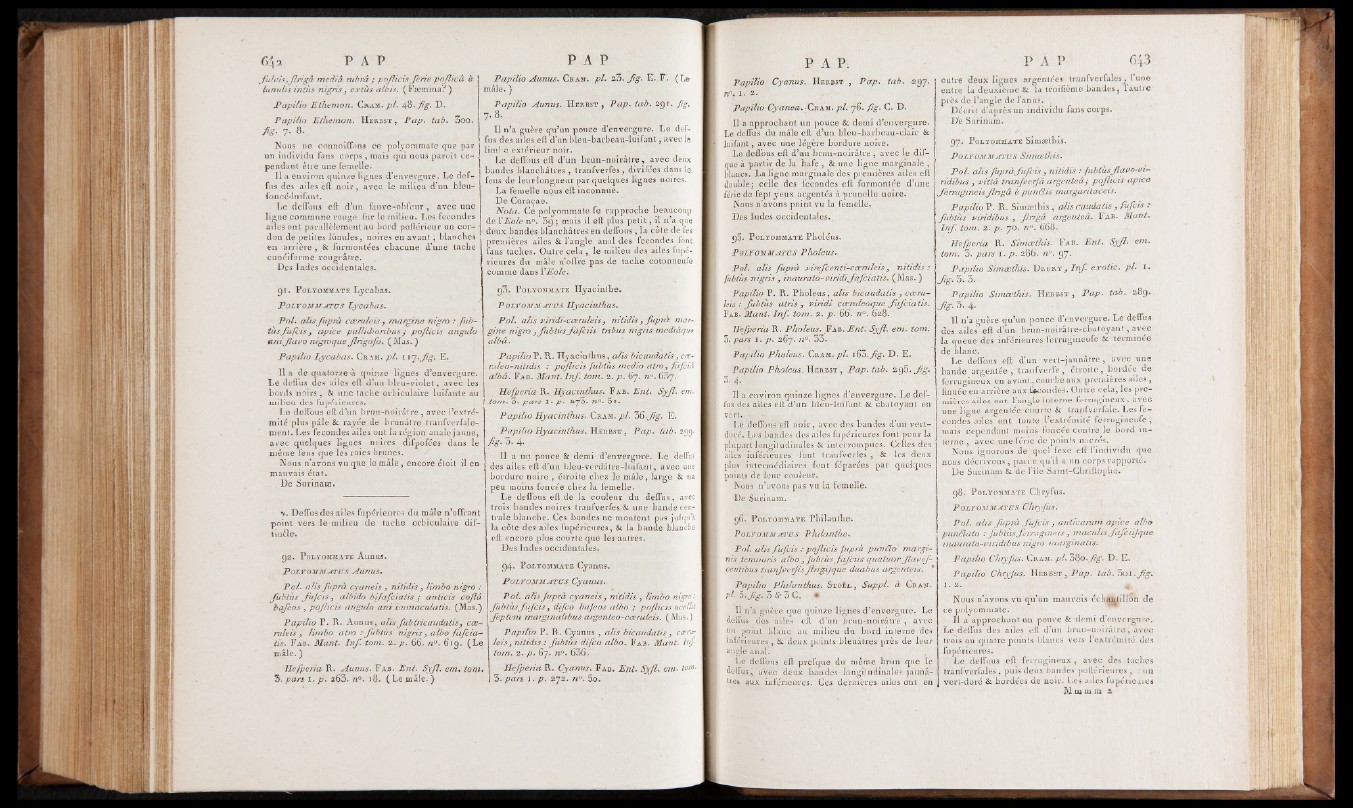 642 P A P
fulvis, strigâ mediâ rubrâ ; posticis serie posticâ è
lunulis intùs nigris, extùs albis. ( Fæmina? )
Papilio Ethemon. Cram. pl. 48. fig. D.
Papilio Ethemon. Herbst, Pap. tab. 300.
fig. 7. 8.
Nous ne connoissons ce polyommate que par
un individu sans corps, mais qui nous paroît ce-
pendant être une femelle.
Il a environ quinze lignes d'envergure. Le des-
sus des ailes est noir, avec le milieu d'un bleu-
foncé-luisant.
Le dessous est d'un fauve-obscur, avec une
ligne commune rouge sur le milieu. Les secondes
ailes ont parallèlement au bord postérieur un cor-
don de petites lunules, noires en avant, blanches
en arrière, & surmontées chacune d'une tache
cunéiforme rougeâtre.
Des Indes occidentales.
91. Polyommate Lycabas.
Polyommatus Lycabas.
Pol. alis suprà cæruleis, margine nigro : sub-
tùs fuscis, apice pallidioribus ; posticis angulo
ani flavo nigroque strigoso. ( Mas. )
Papilio Lycabas. Cram. pl. 117. fig. E.
Il a de quatorze à quinze lignes d'envergure.
Le dessus des ailes est d'un bleu-violet, avec les
bords noirs, & une tache orbiculaire luisante au
milieu des supérieures.
Le dessous est d'un brun-noirâtre, avec l'extré-
mité plus pâle & rayée de brunâtre transversale-
ment. Les secondes ailes ont la région anale jaune,
avec quelques lignes noires disposées dans le
même sens que les raies brunes.
Nous n'avons vu que le mâle, encore étoit il en
mauvais état.
De Surinam.
v. Dessus des ailes supérieures du mâle n'offrant
point vers le milieu de tache orbiculaire dis-
tincte.
92. Polyommate Aunus.
Polyommatus Aunus.
Pol. alis suprà cyaneis, nitidis, limbo nigro :
subtùs fuscis, albido bifasciatis ; anticis costâ
baseos, posticis angulo ani immaculatis. (Mas.)
Papilio P. R. Aunus, alis subtricaudatis, cæ-
ruleis, limbo atro : subtùs nigris, albo fascia-
tis. Fab. Mant. Inf. tom. 2. p. 66. n°. 619. (Le
mâle. )
Hesperia R. Aunus. Fab. Ent. Syst. em. tom.
3. pars 1. p. 263. n°. 18. ( Le mâle. )
P A P
Papilio Aunus. Cram. pl. 23. fig. E. F. (Le
mâle. )
Papilio Aunus. Herbst, Pap. tab. 291. fig.
7. 8.
Il n'a guère qu'un pouce d'envergure. Le des-
sus des ailes est d'un bleu-barbeau-luisant, avec le
limbe extérieur noir.
Le dessous est d'un brun-noirâtre, avec deux
bandes blanchâtres, transverses, divisées dans le
sens de leur longueur par quelques lignes noires.
La femelle nous est inconnue.
De Coraçao.
Nota. Ce polyommate se rapproche beaucoup
de l'Eole n°. 39 ; mais il est plus petit, il n'a que
deux bandes blanchâtres en dessous, la côte de ses
premières ailes & l'angle anal des secondes sont
sans taches. Outre cela, le milieu des ailes supé-
rieures du mâle n'offre pas de tache cotonneuse
comme dans l'Eole.
93. Polyommate Hyacinthe.
Polyommatus Hyacinthus.
Pol. alis viridi-cæruleis, nitidis, suprà mar-
gine nigro, subtùs fasciis tribus nigris mediâque
albâ.
Papilio P. R. Hyacinthus, alis bicaudatis, cæ-
ruleo-nitidis : posticis subtùs medio atro, fasciâ
albâ. Fab. Mant. Inf. tom. 2. p. 67. n°. 637.
Hesperia R. Hyacinthus. Fab. Ent. Syst. em.
tom. 3. pars 1. p. 273. n°. 52.
Papilio Hyacinthus. Cram. pl. 36. fig. E.
Papilio Hyacinthus. Herbst, Pap. tab. 299.
fig. 3. 4.
Il a un pouce & demi d'envergure. Le dessus
des ailes est d'un bleu-verdâtre-luisant, avec une
bordure noire, étroite chez le mâle, large & un
peu moins foncée chez la femelle.
Le dessous est de la couleur du dessus, avec
trois bandes noires transverses & une bande cen-
trale blanche. Ces bandes ne montent pas jusqu'à
la côte des ailes supérieures, & la bande blanche
est encore plus courte que les autres.
Des Indes occidentales.
94. Polyommate Cyanus.
Polyommatus Cyanus.
Pol. alis suprà cyaneis, nitidis, limbo nigro :
subtùs fuscis, disco baseos albo ; posticis ocellis
septem marginalibus argenteo-cæruleis. ( Mas. )
Papilio P. R. Cyanus, alis bicaudatis, cæru-
leis, nitidis : subtùs disco albo. Fab. Mant. Inf.
tom. 2. p. 67. n°. 636.
Hesperia R. Cyanus. Fab. Ent. Syst. em. tom.
3. pars 1. p. 272. n°. 50.
P A P.
Papilio Cyanus. Herbst, Pap. tab. 297.
n°. 1. 2.
Papilio Cyanea. Cram. pl. 76. fig. C. D.
Il a approchant un pouce & demi d'envergure.
Le dessus du mâle est d'un bleu-barbeau-clair &
luisant, avec une légère bordure noire.
Le dessous est d'un brun-noirâtre, avec le dis-
que à partir de la base, & une ligne marginale,
blancs. La ligne marginale des premières ailes est
double ; celle des secondes est surmontée d'une
série de sept yeux argentés à prunelle noire.
Nous n'avons point vu la femelle.
Des Indes occidentales.
95. Polyommate Pholéus.
Polyommatus Pholeus.
Pol. alis suprà virescenti-cæruleis, nitidis :
subtùs nigris, inaurato-viridi fasciatis. (Mas.)
Papilio P. R. Pholeus, alis bicaudatis, cæru-
leis : subtùs atris, viridi cæruleoque fasciatis.
Fab. Mant. Inf. tom. 2. p. 66. n°. 628.
Hesperia R. Pholeus. Fab. Ent. Syst. em. tom.
3. pars 1. p. 267. n°. 33.
Papilio Pholeus. Cram. pl. 163. fig. D. E.
Papilio Pholeus. Herbst, Pap. tab. 295. fig.
3. 4.
Il a environ quinze lignes d'envergure. Le des-
sus des ailes est d'un bleu-luisant & chatoyant en
vert.
Le dessous est noir, avec des bandes d'un vert-
doré. Les bandes des ailes supérieures sont pour la
plupart longitudinales & interrompues. Celles des
ailes inférieures sont transverses, & les deux
plus intermédiaires sont séparées par quelques
points de leur couleur.
Nous n'avons pas vu la femelle.
De Surinam.
96. Polyommate Philanthe.
Polyommatus Philanthe.
Pol. alis fuscis : posticis suprà puncto margi-
nis tenuioris albo, subtùs fasciis quatuor flaves-
centibus transversis strigisque duabus argenteis.
Papilio Philanthus. Stoll, Suppl. à Cram.
pl. 5. fig. 3 & 3 C.
Il n'a guère que quinze lignes d'envergure. Le
dessus des ailes est d'un brun-noirâtre, avec
un point blanc au milieu du bord interne des
inférieures, & deux points bleuâtres près de leur
angle anal.
Le dessous est presque du même brun que le
dessus, avec deux bandes longitudinales jaunâ-
tres aux inférieures. Ces dernières ailes ont en
P A P 643
outre deux lignes argentées transversales, l'une
entre la deuxième & la troisième bandes, l'autre
près de l'angle de l'anus.
Décrit d'après un individu sans corps.
De Surinam.
97. Polyommate Simæthis.
Polyommatus Simæthis.
Pol. alis suprà fuscis, nitidis : subtùs flavo-vi-
ridibus, vittâ transversâ argenteâ ; posticis apice
ferrugineis strigâ è punctis margaritaceis.
Papilio P. R. Simæthis, alis caudatis, fuscis :
subtùs viridibus, strigâ argenteâ. Fab. Mant.
Inf. tom. 2. p. 70. n°. 668.
Hesperia R. Simæthis. Fab. Ent. Syst. em.
tom. 3. pars 1. p. 286. n°. 97.
Papilio Simæthis. Drury, Inf. exotic. pl. 1.
fig. 3. 3.
Papilio Simæthis. Herbst, Pap. tab. 289.
fig. 3. 4.
Il n'a guère qu'un pouce d'envergure. Le dessus
des ailes est d'un brun-noirâtre-chatoyant, avec
la queue des inférieures ferrugineuse & terminée
de blanc.
Le dessous est d'un vert-jaunâtre, avec une
bande argentée, transverse, étroite, bordée de
ferrugineux en avant, courbe aux premières ailes,
sinuée en arrière aux secondes. Outre cela, les pre-
mières ailes ont l'angle interne ferrugineux, avec
une ligne argentée courte & transversale. Les se-
condes ailes ont toute l'extrémité ferrugineuse,
mais cependant moins foncée contre le bord in-
terne, avec une série de points nacrés.
Nous ignorons de quel sexe est l'individu que
nous décrivons, parce qu'il a un corps rapporté.
De Surinam & de l'île Saint-Christophe.
98. Polyommate Chrysus.
Polyommatus Chrysus.
Pol. alis suprà fuscis, anticarum apice albo
punctato : subtùs ferrugineis, maculis fasciisque
inaurato-viridibus nigro marginatis.
Papilio Chrysus. Cram. pl. 380. fig. D. E.
Papilio Chrysus. Herbst, Pap. tab. 301. fig.
1. 2.
Nous n'avons vu qu'un mauvais échantillon de
ce polyommate.
Il a approchant un pouce & demi d'envergure.
Le dessus des ailes est d'un brun-noirâtre, avec
trois ou quatre points blancs vers l'extrémité des
supérieures.
Le dessous est ferrugineux, avec des taches
transversales, puis deux bandes postérieures, un
vert-doré & bordées de noir. Les ailes supérieures
M m m m 2